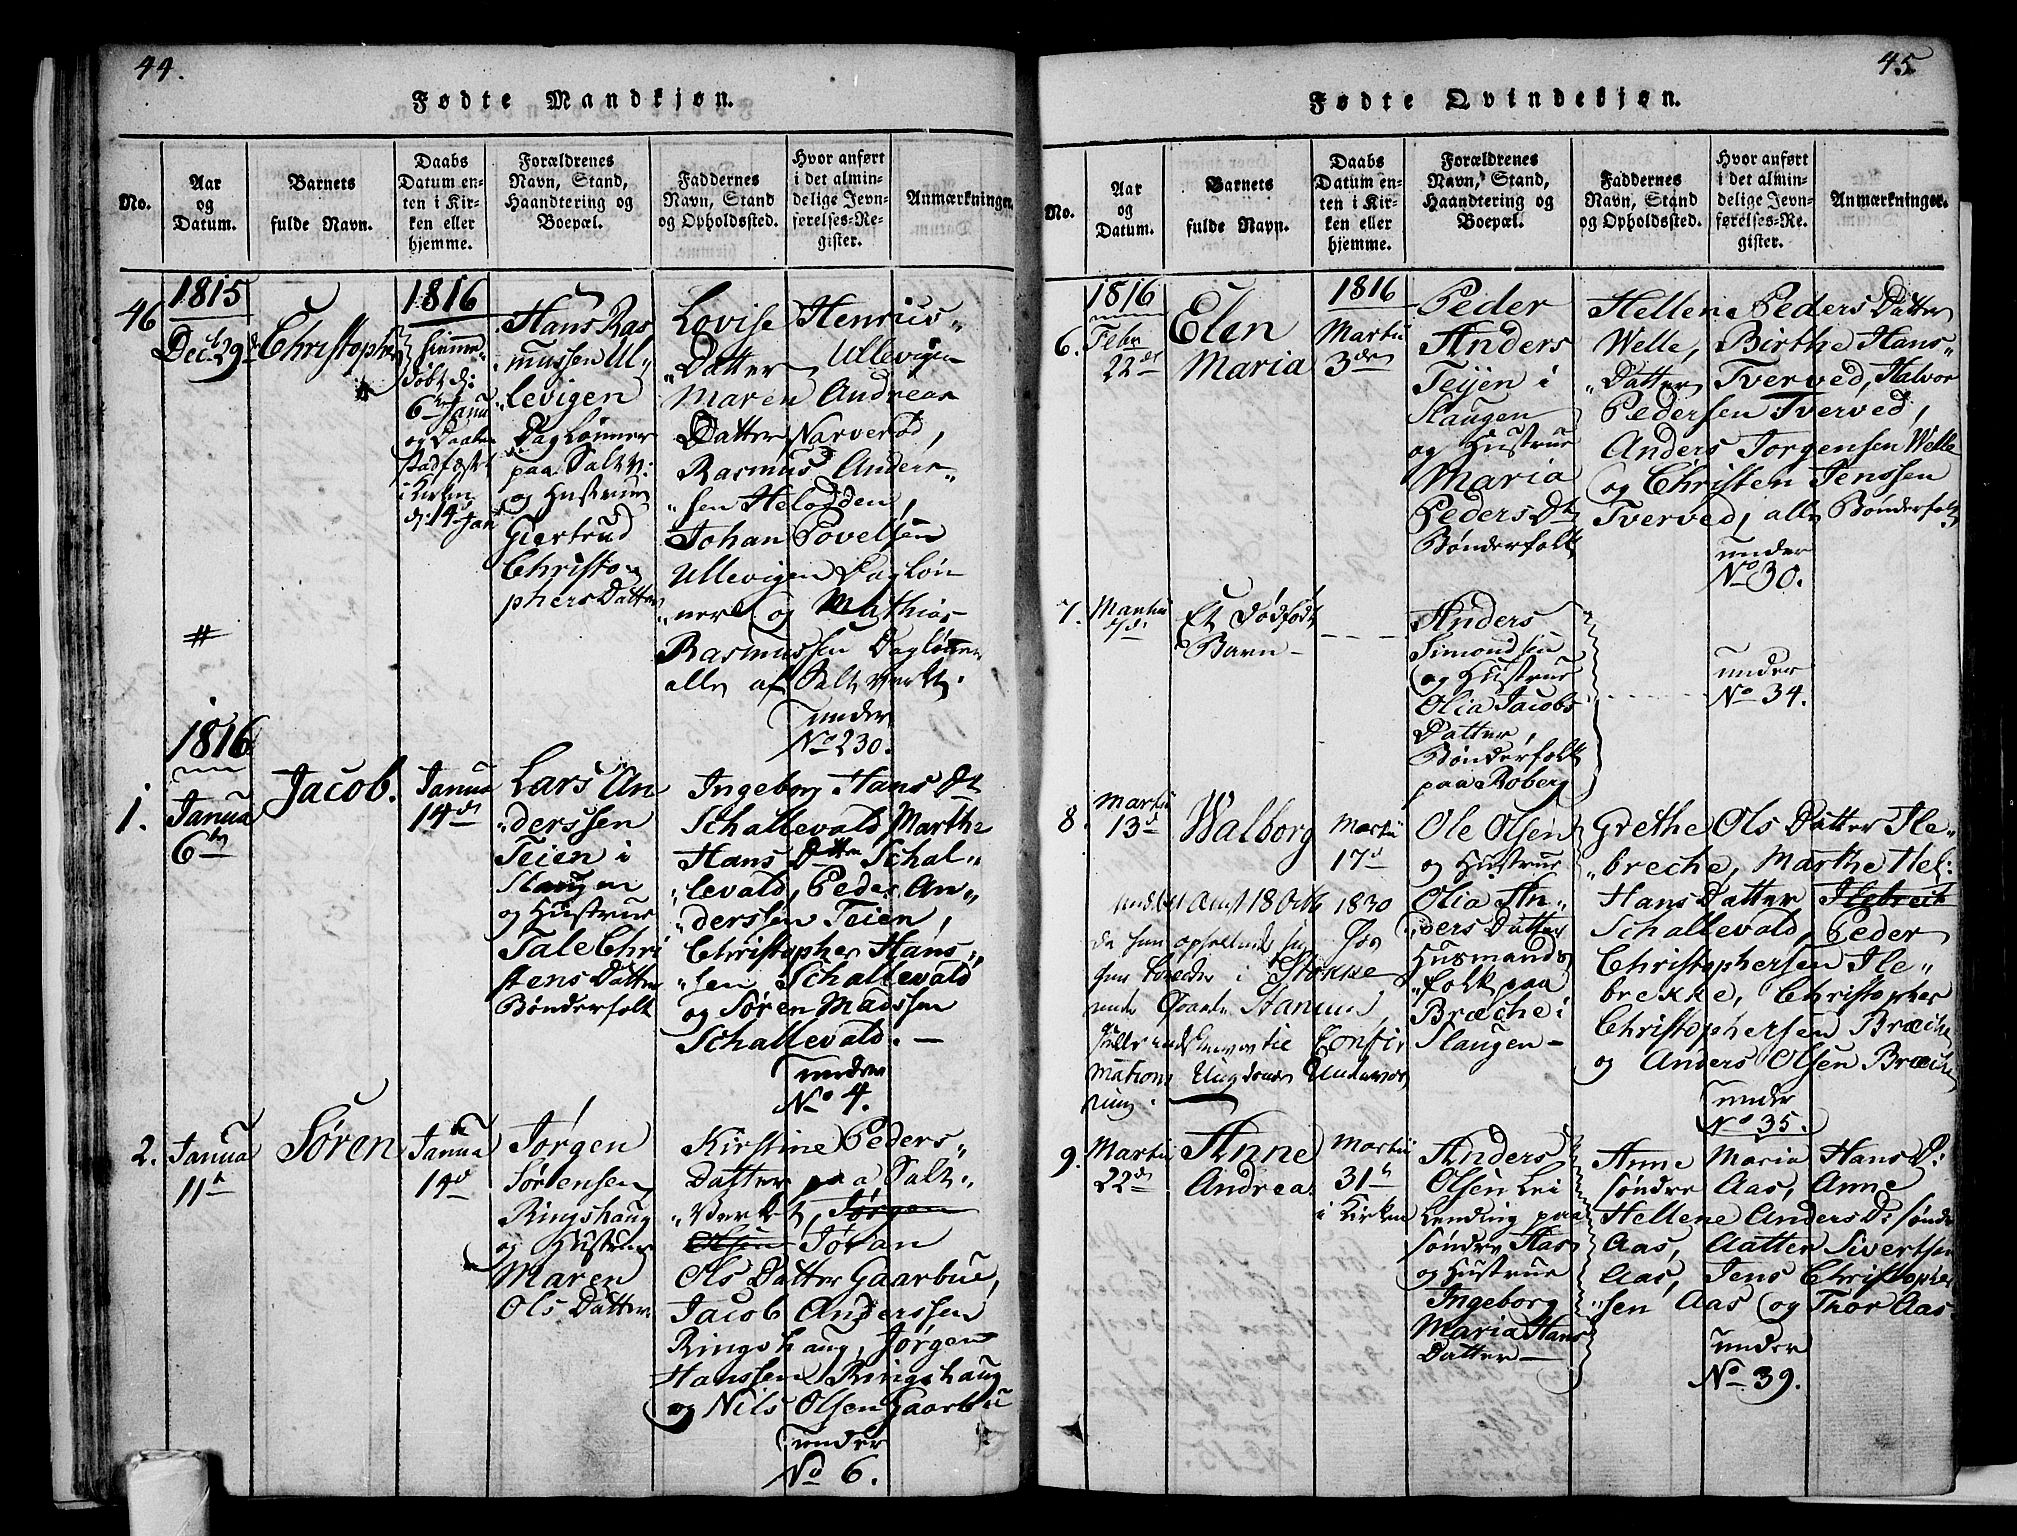 44.
Fødte Mandkjøn.
No.
Aar
og
Datum.
Barnets
fulde Navn.
Daabs
Datum en-
ten i Kir-
ken eller
hjemme.
Forældrenes
Navn, Stand,
Haandtering og
Boepæl.
Faddernes
Navn, Stand
og Opholdssted.
Hvor anført
i det almin-
delige Jevn-
førelses-Re-
gister.
Anmærkninger.
46
1815
Decb 29d
Christopher
1816
hjemme-
døbt d:
6te Janu
og Daaben
stadfæstet
i Kirken
d: 14 Janu
Hans Ras
mussen Ul-
levigen
Daglønner
paa Saltv:
og Hustrue
Giertrud
Christo
phers Datter
Lovise Henrics-
Datter Ullevigen
Maren Andreas
Datter Narverød,
Rasmus Anders-
sen Helgdden,
Johan Povelsen
Ullevigen Dagløn
ner og Mathias
Rasmussen Dagløner
alle af Saltverket.
under
No 230.
#
1816
1.
Janua
6te
Jacob.
Janua
14de
Lars An
derssen
Teien i
Slaugen
og Hustrue
Tale Chri
stens Datter
Bønderfolk
Ingeborg Hans Dt
Schallevald Marthe
Hans Dtter Schal-
levald, Peder An-
derssen Teien,
Christopher Hans-
sen Schallevald
og Søren Madssen
Schallevald. -
under
No 4.
2.
Janua
11te
Søren
Janua
14d
Jørgen
Sørensen
Ringshaug
og Hustrue
Maren
Ols Datter
Kirstine Peders-
Datter paa Salt-
Verket, Jørgen
Olsen Jøran
Ols Datter Gaarbue,
Jacob Anderssen
Ringshaug, Jørgen
Hanssen Ringshaug
og Nils Olsen Gaarbue
under
No 6.
45
Fødte Qvindekjøn.
No.
Aar
og
Datum.
Barnets
fulde Navn.
Daabs
Datum en-
ten i Kir-
ken eller
hjemme.
Forældrenes
Navn, Stand,
Haandtering og
Boepæl.
Faddernes
Navn, Stand
og Opholdssted.
Hvor anført
i det almin-
delige Jevn-
førelses-Re-
gister.
Anmærkninger.
1816
6.
Febr
22de
Elen
Maria
1816
Martii
3de
Peder
Anders
Teijen i
Slaugen
og Hustrue
Maria
Peders Dt
Bønderfolk
Hellene Peders Datter
Welle, Birthe Hans-
Datter Tverved, Halvor
Pedersen Tverved,
Anders Jorgensen Welle
og Christen Jenssen
Tverved, alle Bønderfolk
under
No 30.
7.
Martii
7de
Et dødfødt
Barn -
Anders
Simondsen
og Hustrue
Olia Jacobs
Datter,
Bønderfolk
paa Roberg
under
No 34.
8.
Martii
13d
Walborg
Martii
17d
Ole Olsen
og Hustrue
Olia An-
ders Datter
Husmands
folk paa
Bræche i
Slaugen -
Grethe Ols Datter Ile-
breche, Marthe Hel:
Hans Datter Ilebreck
Schallevald, Peder
Christophersen Ile-
brekke, Christopher
Christophersen Bræche
og Anders Olsen Bræche
under
No 35.
18 Octb 1830
i Stokke
Confir
mations Ungdommens Underviis
ning.
9.
Martii
22de
Anne
Andrea
Martii
31te
i Kirken
Anders
Olsen Lei
lending paa
søndre Aas
og Hustrue
Ingeborg
Maria Hans
Datter -
Anne Maria Hans D:
søndre Aas, Anne
Hellene Anders D: søndre
Aas, Aatter Sivertsen
Aas, Jens Christopher
sen Aas og Thor Aas.
under
No 39.